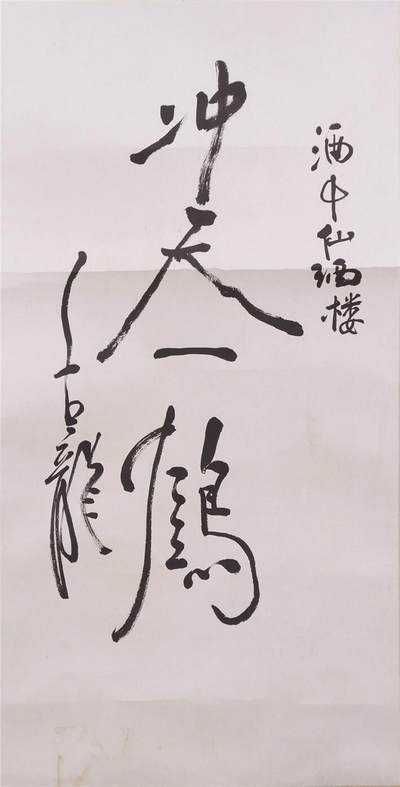 酒中仙酒楼
冲天一鹤
古龍